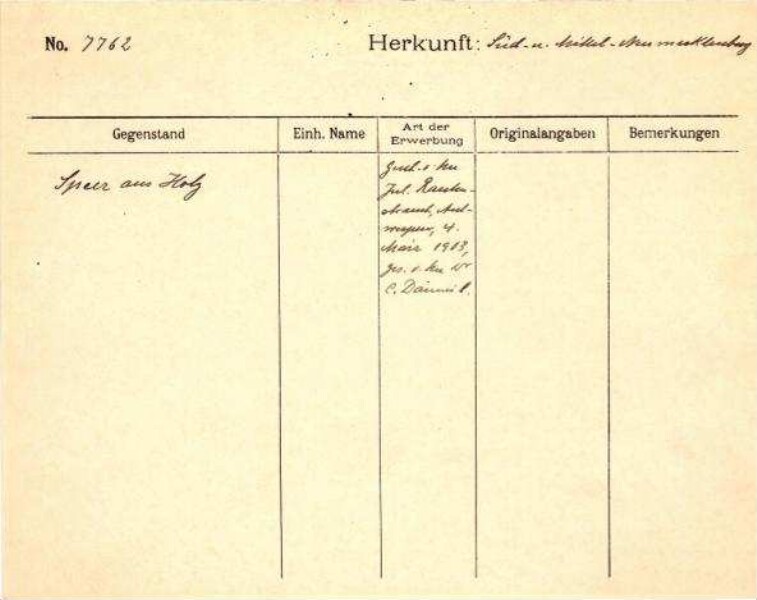 No. 7762 Herkunft: Süd- u. Mittel-Neumecklenburg
Gegenstand Einh. Name Art der Erwerbung Originalangaben Bemerkungen
Speer aus Holz
Gesch. v.
Jul. Rauten-
strauch, Ant-
werpen, 4.
März 1903,
ges. v. Dr
C. Däumi